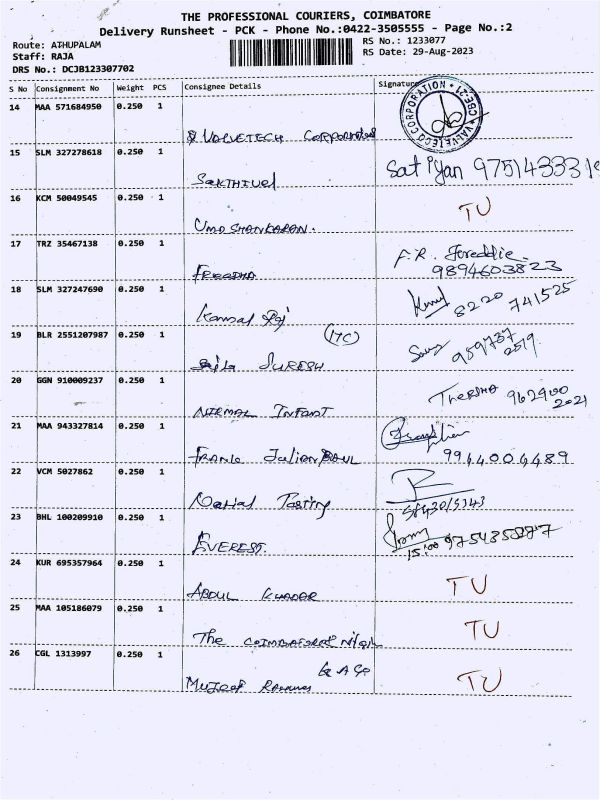 THE PROFESSIONAL COURIERS, COIMBATORE
Delivery Runsheet - PCK - Phone No.:0422-3505555 - Page No.:2
Route: ATHUPALAM RS No.: 1233077
Staff: RAJA RS Date: 29-Aug-2023
DRS No.: DCJB123307702
S No Consignment No Weight PCS Consignee Details Signature
14 MAA 571684950 0.250 1
VALVETECH CORPORATION
VALVETECO CORPORATION * CBE-21 *
15 SLM 327278618 0.250 1
SAKTHIVEL Satiyan
16 KCM 50049545 0.250 1
UMASHANKARAN. TU
17 TRZ 35467138 0.250 1
F.R. Freddie
9894603823
18 SLM 327247690 0.250 1
Kamal Raj 8220 741525
19 BLR 2551207987 0.250 1
SURESH
20 GGN 910009237 0.250 1
NIRMAL INFANT 962900
2021
21 MAA 943327814 0.250 1
FRANK Julian PAUL 9944004489
22 VCM 5027862 0.250 1
23 BHL 100209910 0.250 1
EVEREST. 15:00
24 KUR 695357964 0.250 1
ABDUL KHADER TU
25 MAA 105186079 0.250 1
The COIMBATORE TU
26 CGL 1313997 0.250 1
TU